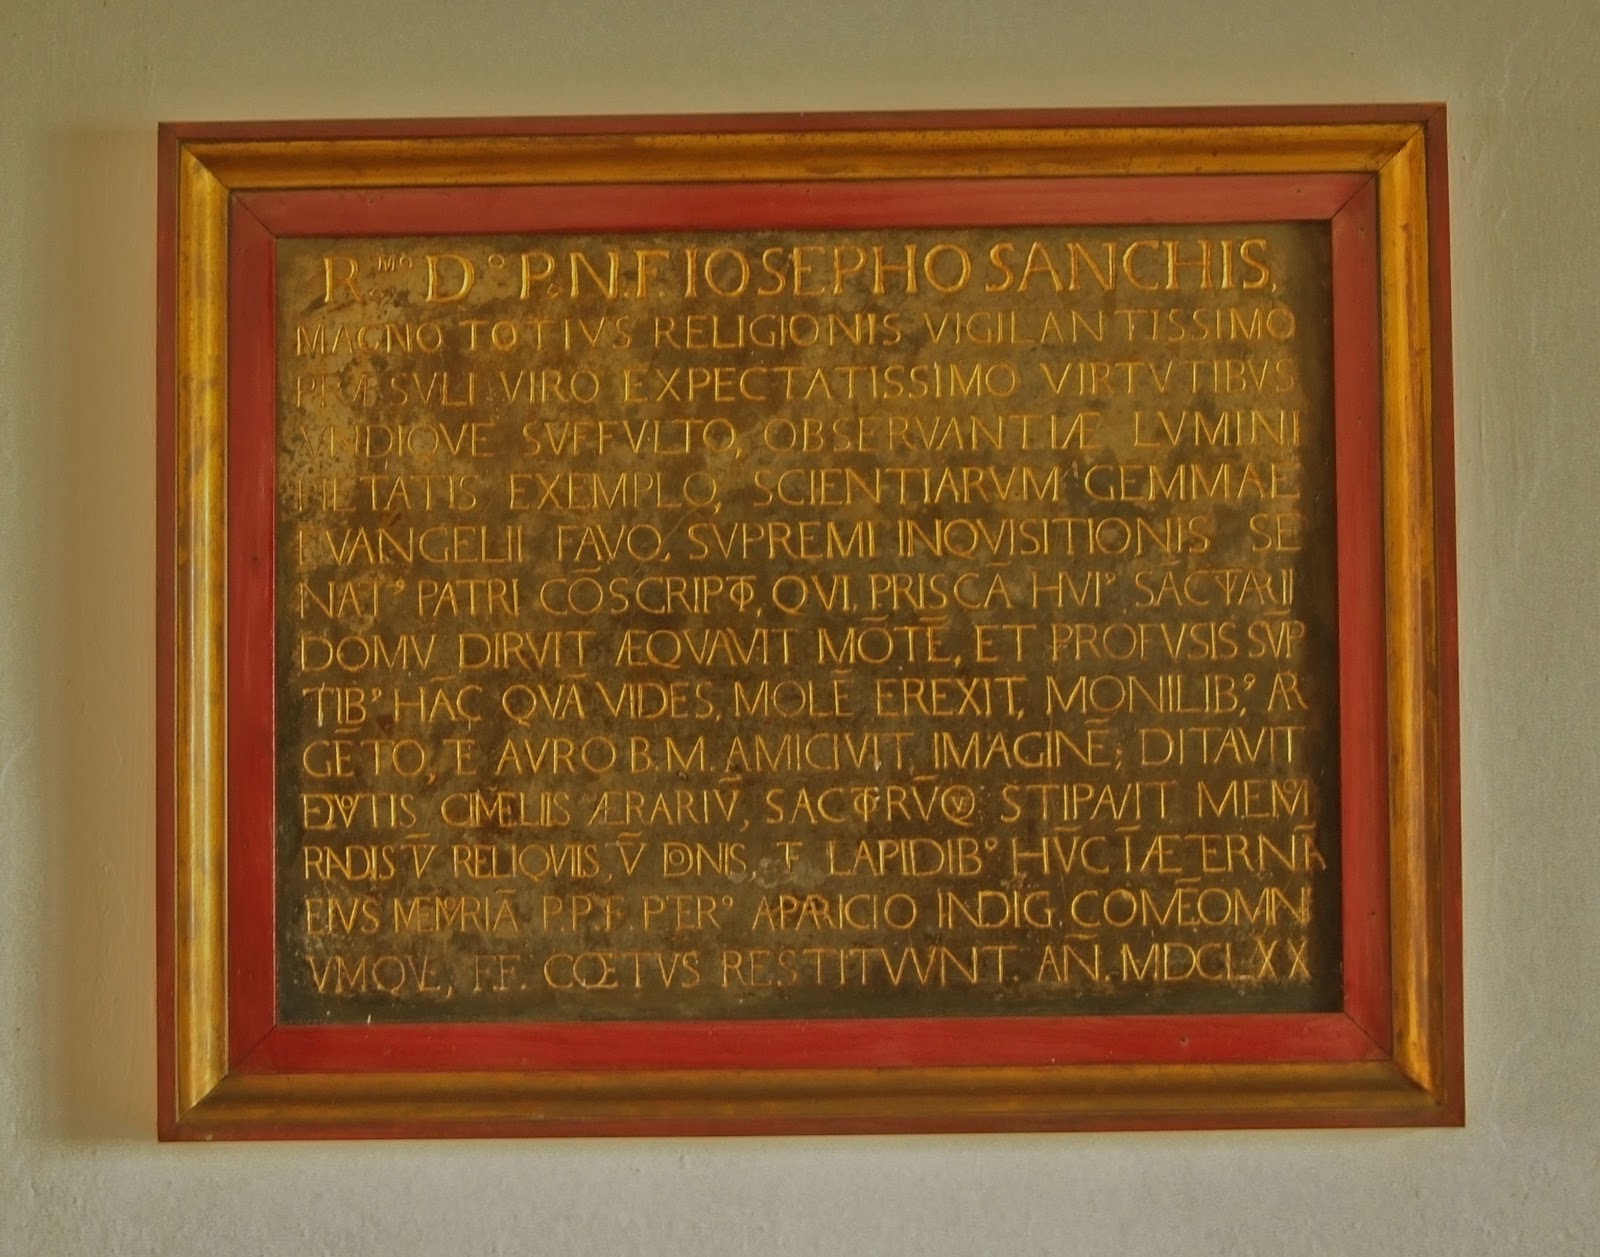 R.ᴹᴼ Dº P.N.F. IOSEPHO SANCHIS,
MAGNO TOTIVS RELIGIONIS VIGILANTISSIMO
PRÆSVLI VIRO EXPECTATISSIMO VIRTVTIBVS
VNDIQVE SVFFVLTO, OBSERVANTIÆ LVMINI
TATIS EXEMPLO, SCIENTIARVM GEMMAE
EVANGELII FAVO, SVPREMI INQVISITIONIS SE
NAT⁹ PATRI CÕSCRIPTO, QVI, PRISCÃ HVI⁹ SÃCTVARII
DOMV DIRVIT ÆQVAVIT MÕTẼ, ET PROFVSIS SVP
TIB⁹ HÃC QVÃ VIDES, MOLẼ EREXIT, MONILIB⁹, AR
GẼTO, TE AVRO B.M. AMICIVIT IMAGINẼ; DITAVIT
CIMELIIS ÆRARIṼ, STIPAVIT MEMO
RNDIS Ṽ RELIQVIIS, Ṽ DONIS, LAPIDIB⁹ HṼC ĨÆTERNÃ
EIVS MEMORIÃ P.P.F. APARICIO INDIG. COMẼ OMNI
VMQVE, FF. CŒTVS RESTITVVNT. AÑ. MDCLXX